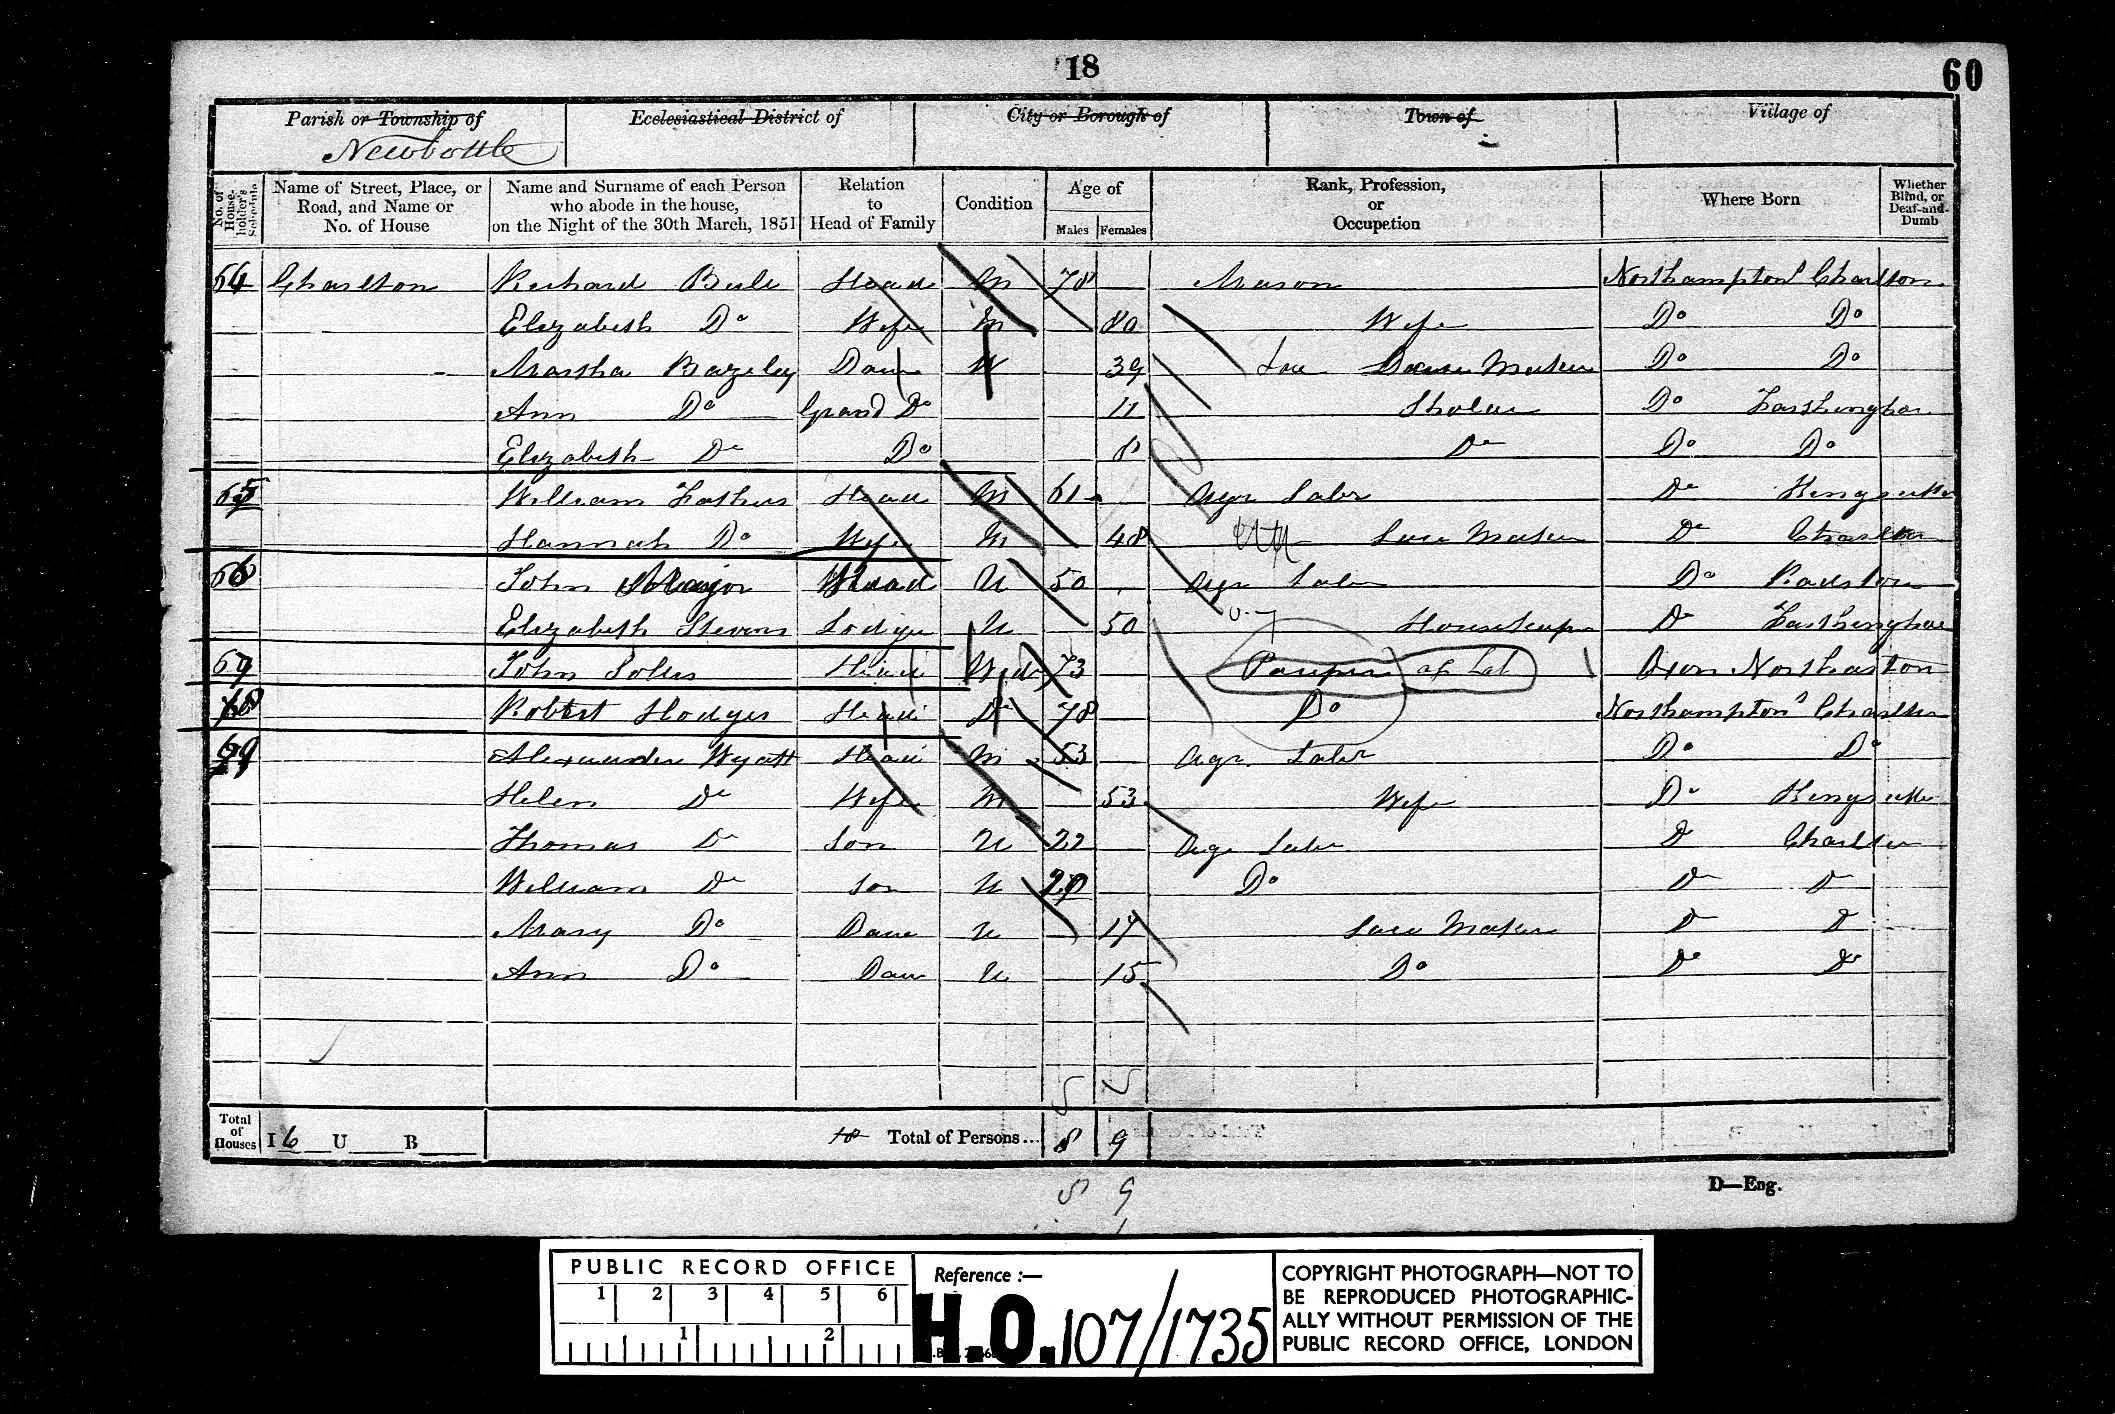 18
60
Parish or Township of
Ecclesiastical District of
City or Borough of
Town of
Village of
Newbottle
No. of House-holder's Schedule
Name of Street, Place, or Road, and Name or No. of House
Name and Surname of each Person who abode in the house, on the Night of the 30th March, 1851
Relation to Head of Family
Condition
Age of
Males
Females
Rank, Profession, or Occupation
Where Born
Whether Blind, or Deaf-and-Dumb
64 Charlton Richard Head M 78 Mason Northampton Charlton
Elizabeth Do Wife M 80 Wife Do Do
Martha Bazeley Daur W 39 Lace Maker Do Do
Ann Do Grand Do 11 Scholar Do Farthinghoe
Elizabeth Do Do 8 Do Do Do
65 William Head M 61 Agr Labr Do Kingsutton
Hannah Do Wife M 48 Lace Maker Do Charlton
66 John Major Head U 50 Agr Labr Do Radston
Elizabeth Stevens Lodger U 50 Housekeeper Do Farthinghoe
67 John Head Widr 73 Pauper ag Lab Oxon
68 Robert Hodges Head Do 78 Do Northampton Charlton
69 Alexander Wyatt Head M 53 Agr Labr Do Do
Helen Do Wife M 53 Wife Do Kingsutton
Thomas Do Son U 22 Agr Labr Do Charlton
William Do Son U Do Do Do
Mary Do Daur U 17 Lace Maker Do Do
Ann Do Daur U 15 Do Do Do
Total of Houses I 6 U B
Total of Persons... 8 9
D—Eng.
PUBLIC RECORD OFFICE
1 2 3 4 5 6
1 2
Reference :—
H.O. 107/1735
COPYRIGHT PHOTOGRAPH—NOT TO
BE REPRODUCED PHOTOGRAPHIC-
ALLY WITHOUT PERMISSION OF THE
PUBLIC RECORD OFFICE, LONDON